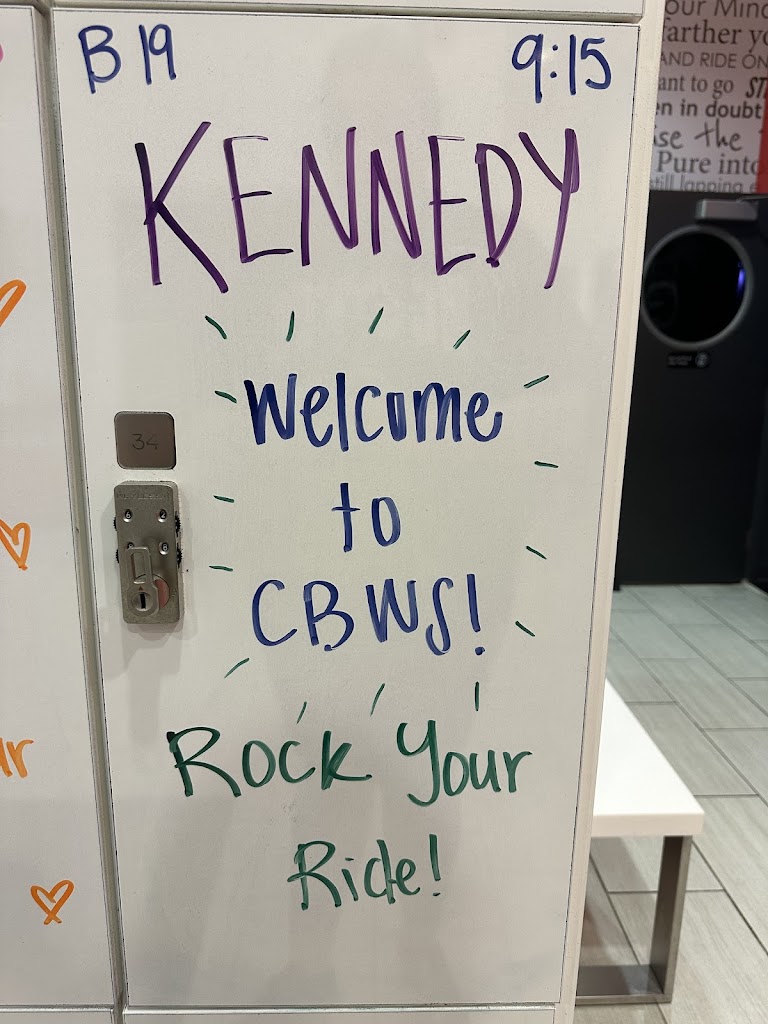 B 19
9:15
KENNEDY
Welcome
to
CBWS!
Rock Your
Ride!
34
our Mind
farther yo
AND RIDE ON
ant to go ST
en in doubt
se the
Pure into
still lapping